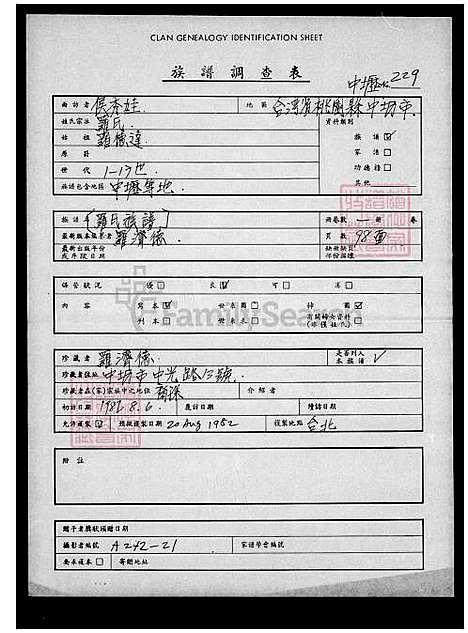 CLAN GENEALOGY IDENTIFICATION SHEET
族譜調查表
中壢 No. 229
面訪者 侯本娃 地區 台灣省桃園縣中坜市
姓氏宗派 羅氏 資料類別
始祖 羅儀達 族譜 ☑
原籍 家譜 □
世代 1-17世 功德榜 □
族譜包含地區 中壢等地 其他
族譜 [羅氏族譜] 冊卷數 一 冊 卷
最新版本編纂者 羅濟儀 頁數 98面
最新出版年份或手段日期 缺冊缺頁
保管狀況 優□ 良☑ 可□ 劣□
內容 寫本☑ 世系圖□ 神圖☑
刊本□ 世系表□ 有關婦女資料
FamilySearch
珍藏者 羅濟儀 是否列入本族譜 ✓
珍藏者住址 中坜市中光路13號
珍藏者在(家)宗族中之地位 裔孫 介紹者
初訪日期 1981.8.6. 複訪日期 續訪日期
允許複製☑ 攝製日期 20 Aug 1982 複製地點 台北
附註
贈予者獎狀頒贈日期
攝影者編號 A242-21 家譜學會編號
要求複本□ 寄贈地址